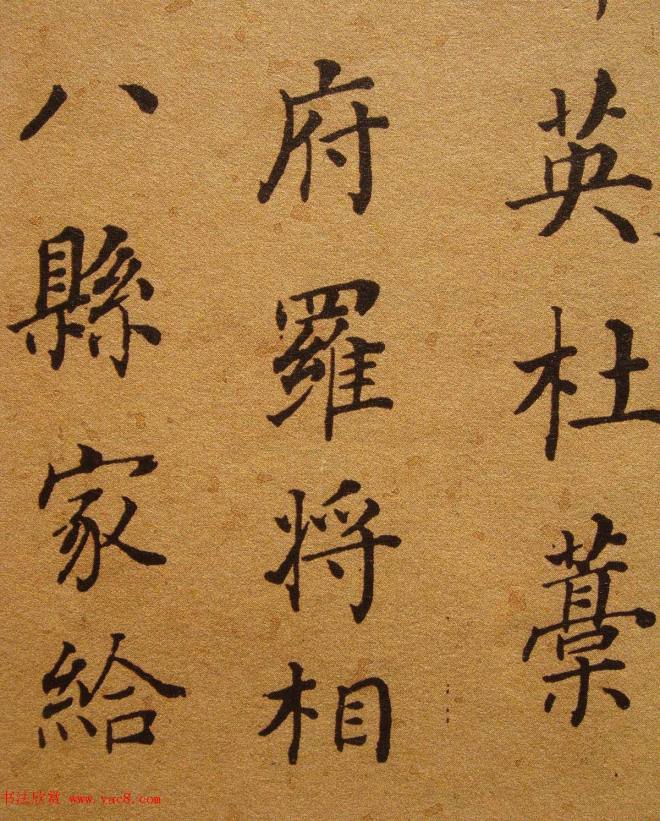 英杜藁
府羅将相
八縣家給
书法欣赏 www.yac8.com